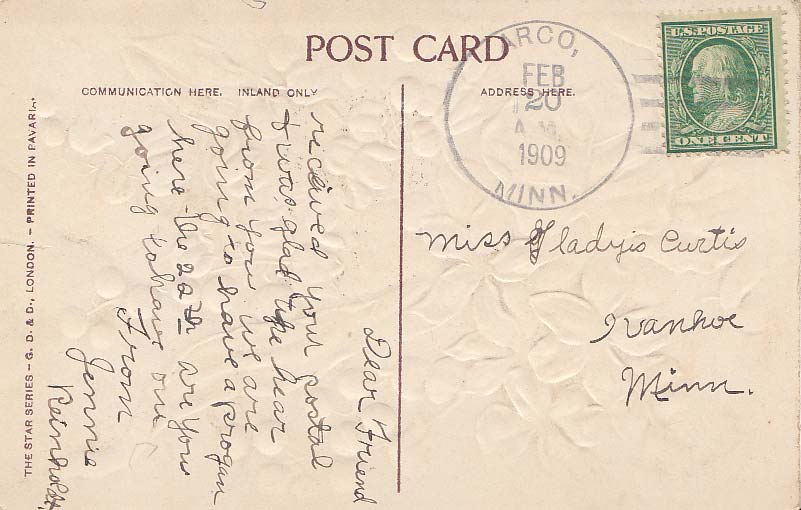 POST CARD
COMMUNICATION HERE. INLAND ONLY
ADDRESS HERE.
ARCO,
FEB
20
A.M.
1909
MINN.
U.S. POSTAGE
ONE CENT
Dear Friend
received your postal
& was glad to hear
from you we are
going to have a progam
here the 22nd are you
going to have one
From
Jennie
Reinholdt
Miss Gladyis Curtis
Ivanhoe
Minn.
THE STAR SERIES – G. D. & D., LONDON. – PRINTED IN BAVARIA.